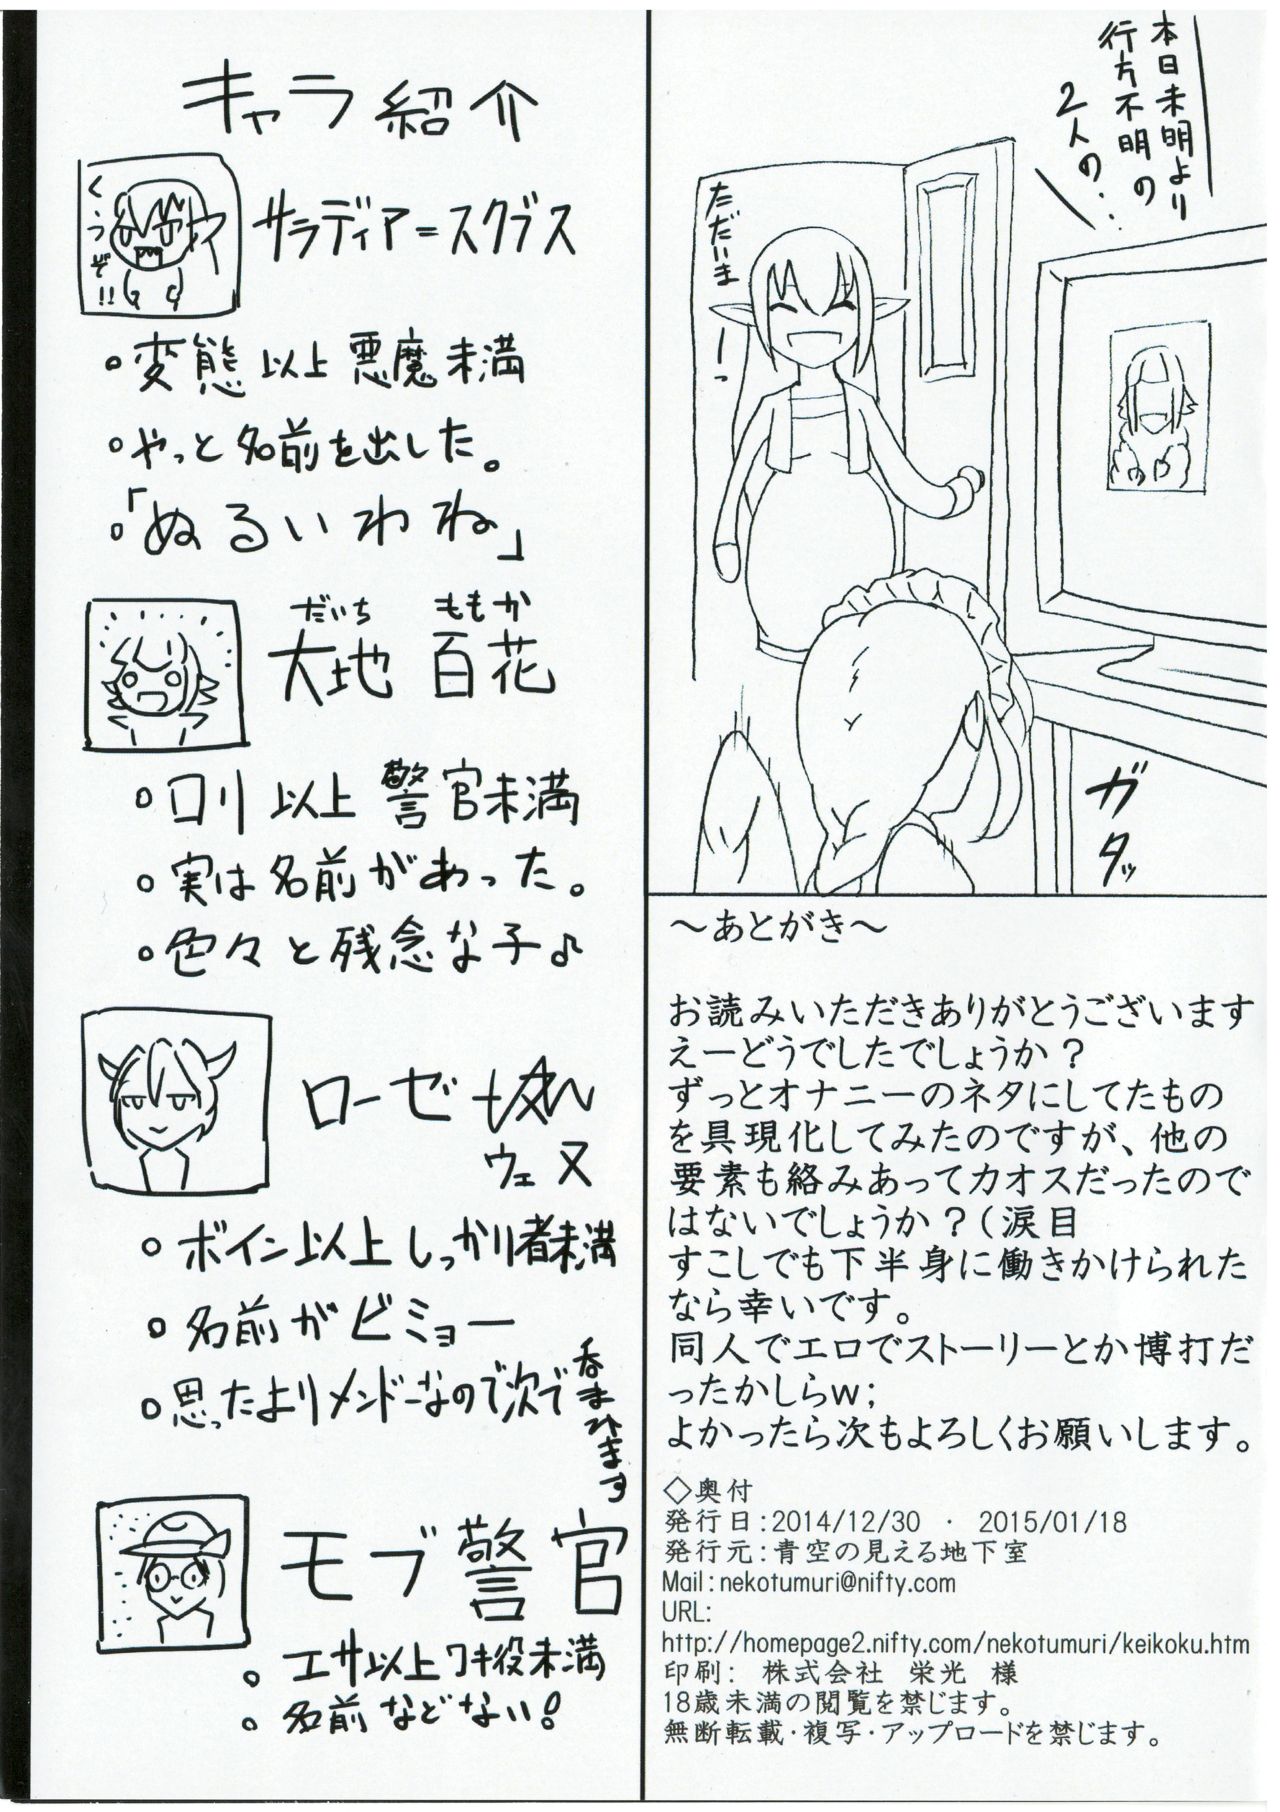 本日未明より
行方不明の
2人の…
ただいまーっ
ガタッ
～あとがき～
お読みいただきありがとうございます
えーどうでしたでしょうか？
ずっとオナニーのネタにしてたもの
を具現化してみたのですが、他の
要素も絡みあってカオスだったので
はないでしょうか？(涙目
すこしでも下半身に働きかけられた
なら幸いです。
同人でエロでストーリーとか博打だ
ったかしらw;
よかったら次もよろしくお願いします。
◇奥付
発行日:2014/12/30 ・ 2015/01/18
発行元:青空の見える地下室
Mail:nekotumuri@nifty.com
URL:
http://homepage2.nifty.com/nekotumuri/keikoku.htm
印刷: 株式会社 栄光 様
18歳未満の閲覧を禁じます。
無断転載・複写・アップロードを禁じます。
キャラ紹介
くうぞ!!
サラディア=スクブス
・変態以上 悪魔未満
・やっと名前を出した。
・「ぬるいわね」
だいち ももか
大地 百花
・ロリ以上 警官未満
・実は名前があった。
・色々と残念な子♪
ローゼ
ウェヌ
・ボイン以上しっかり者未満
・名前がビミョー
・思ったよりメンドーなので次で
呑まれます
モブ警官
・エサ以上ワキ役未満
・名前などない!